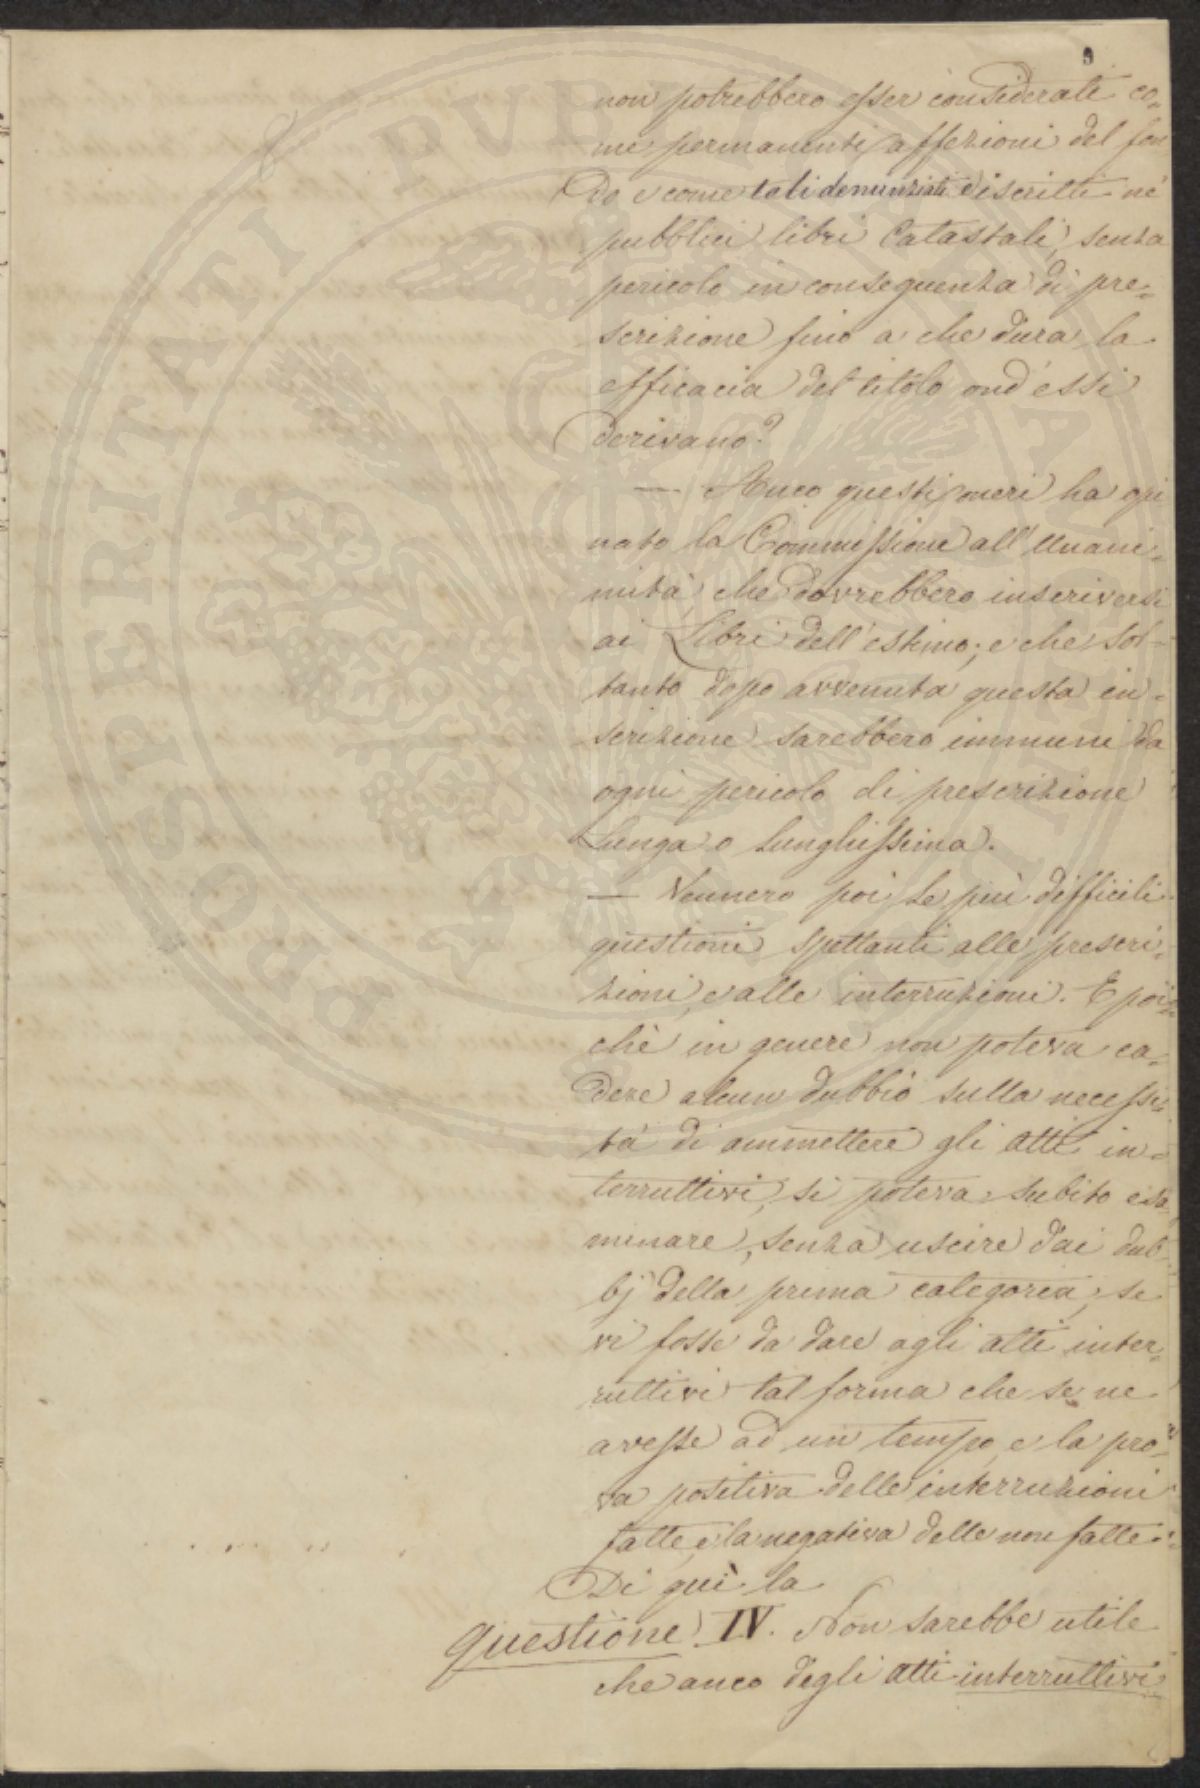 9
non potrebbero esser considerati co=
me permanenti affezioni del fon
do e come tali denunziati e iscritti ne'
pubblici libri Catastali, senza
pericolo in conseguenza di pre=
scrizione fino a che dura la
efficacia del titolo ond'essi
derivano?
— Anco questi oneri ha opi
nato la Commissione all'unani=
mità, che dovrebbero inscriversi
ai Libri dell'estimo; e che sol=
tanto dopo avvenuta questa in=
scrizione sarebbero immuni da
ogni pericolo di prescrizione
lunga o lunghissima.
— Vennero poi le più difficili
questioni spettanti alle prescri=
zioni, e alle interruzioni. E poi=
chè in genere non poteva ca=
dere alcun dubbio sulla necessi=
tà di ammettere gli atti in=
terruttivi, si poteva subito esa
minare, senza uscire dai dub=
bj della prima categoria, se
vi fosse da dare agli atti inter=
ruttivi tal forma che se ne
avesse ad un tempo e la pro=
va positiva delle interruzioni
fatte, e la negativa delle non fatte.
Di quì la
Questione IV. Non sarebbe utile
che anco degli atti interruttivi
PROSPERITATI PUBLICAE